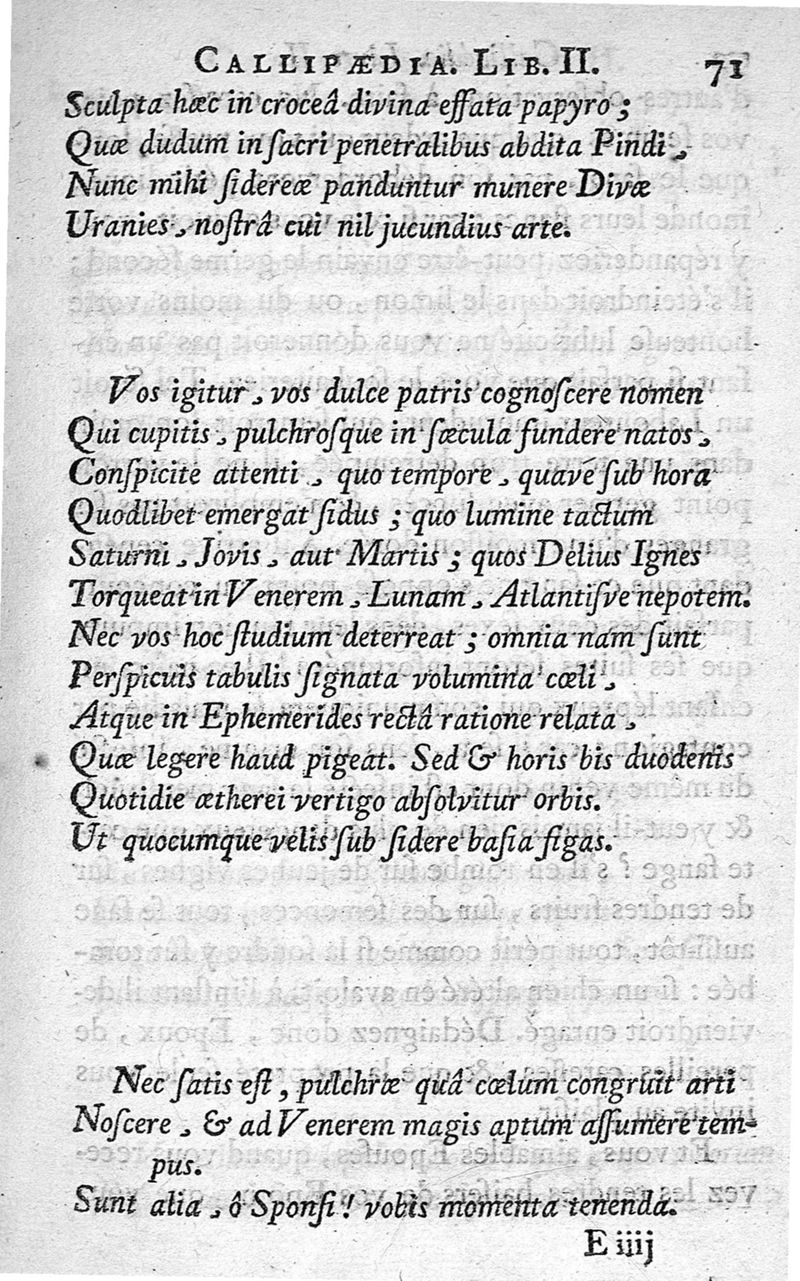 CALLIPÆDIA. LIB. II. 71
Sculpta hæc in croceâ divina effata papyro ;
Quæ dudum in ſacri penetralibus abdita Pindi,
Nunc mihi ſidereæ panduntur munere Divæ
Uranies, noſtrâ cui nil jucundius arte.
Vos igitur, vos dulce patris cognoſcere nomen
Qui cupitis, pulchroſque in ſæcula fundere natos,
Conſpicite attenti, quo tempore, quave ſub hora
Quodlibet emergat ſidus ; quo lumine tactum
Saturni, Jovis, aut Martis ; quos Delius Ignes
Torqueat in Venerem, Lunam, Atlantiſve nepotem.
Nec vos hoc ſtudium deterreat ; omnia nam ſunt
Perſpicuis tabulis ſignata volumina cœli,
Atque in Ephemerides rectâ ratione relata,
Quæ legere haud pigeat. Sed & horis bis duodenis
Quotidie ætherei vertigo abſolvitur orbis.
Ut quocumque velis ſub ſidere baſia figas.
Nec ſatis eſt, pulchræ quâ cœlum congruit arti
Noſcere, & ad Venerem magis aptum aſſumere tem-
pus.
Sunt alia, ô Sponſi ! vobis momenta tenenda.
E iiij